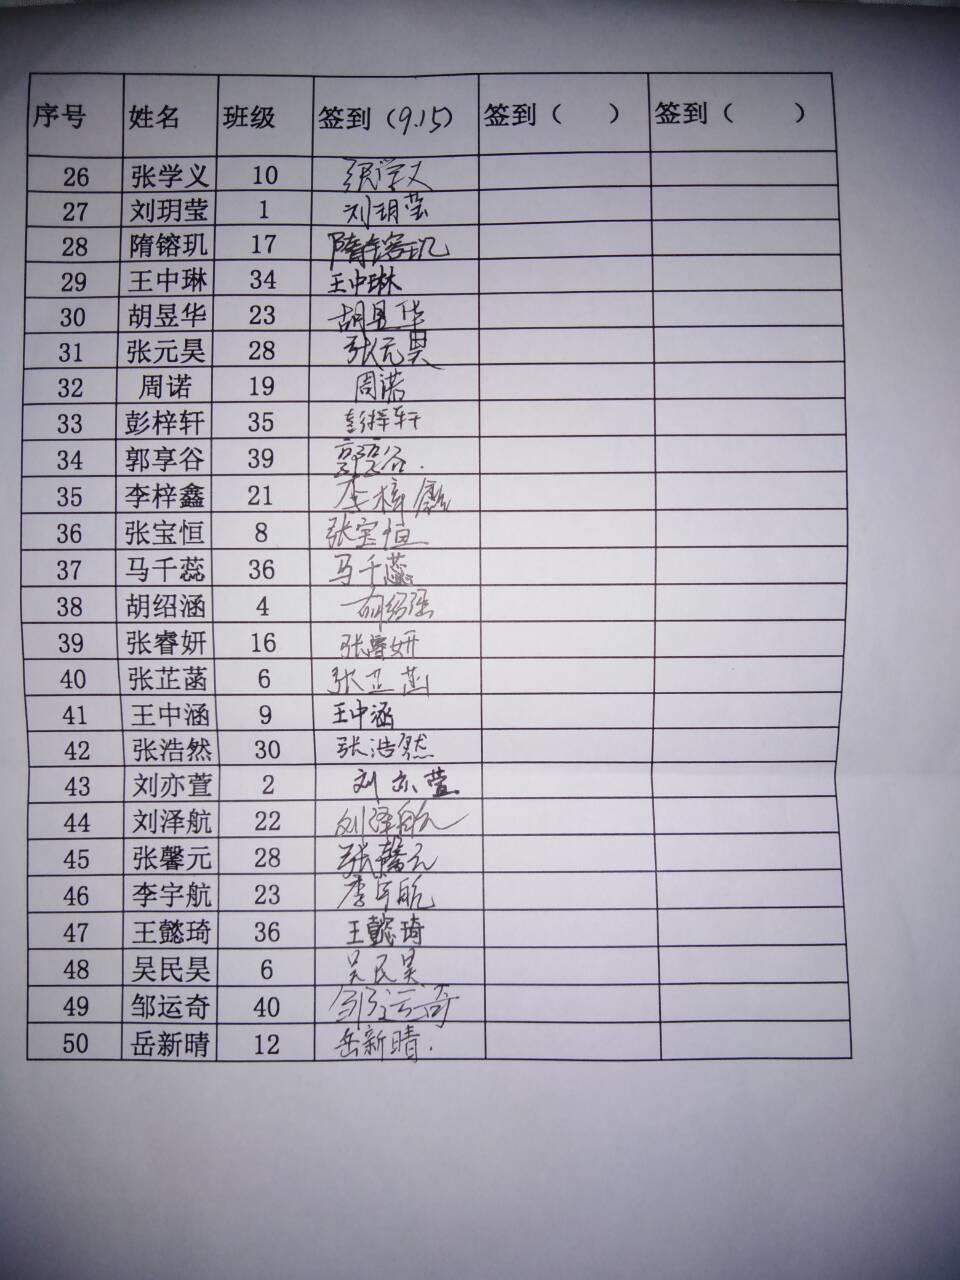 序号 姓名 班级 签到（9.15） 签到（ ） 签到（ ）
26 张学义 10 张学义
27 刘玥莹 1 刘玥莹
28 隋镕玑 17 隋镕玑
29 王中琳 34 王中琳
30 胡昱华 23 胡昱华
31 张元昊 28 张元昊
32 周诺 19 周诺
33 彭梓轩 35 彭梓轩
34 郭享谷 39 郭享谷.
35 李梓鑫 21 李梓鑫
36 张宝恒 8 张宝恒
37 马千蕊 36 马千蕊
38 胡绍涵 4 胡绍涵
39 张睿妍 16 张睿妍
40 张芷菡 6 张芷菡
41 王中涵 9 王中涵
42 张浩然 30 张浩然
43 刘亦萱 2 刘亦萱
44 刘泽航 22 刘泽航
45 张馨元 28 张馨元
46 李宇航 23 李宇航
47 王懿琦 36 王懿琦
48 吴民昊 6 吴民昊
49 邹运奇 40 邹运奇
50 岳新晴 12 岳新晴.